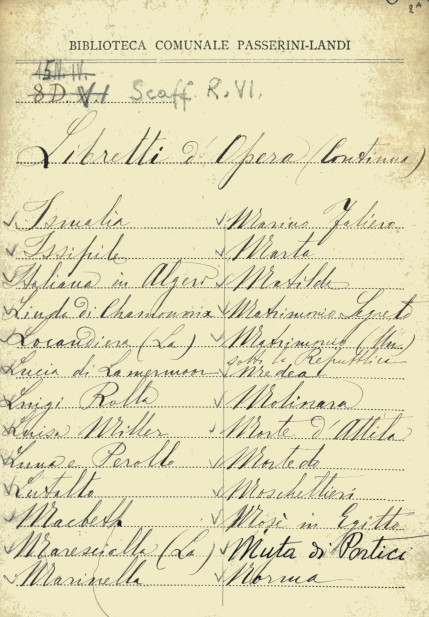 2ª
BIBLIOTECA COMUNALE PASSERINI-LANDI
15H. IV.
8D. VI Scaff. R. VI.
Libretti d'Opera (Continua)
Ismalia
Issipile
Italiana in Algeri
Linda di Chamounix
Locandiera (La)
Lucia di Lamermoor
Luigi Rolla
Luisa Miller
Luna e Perollo
Lutalto
Macbeth
Marescialla (La)
Marinella
Marino Faliero
Marta
Matilde
Matrimonio Segreto
Matrimonio (Un)
sotto la Repubblica
Medea
Molinara
Morte d'Attila
Mortedo
Moschettieri
Mosè in Egitto
Muta di Portici
Norma